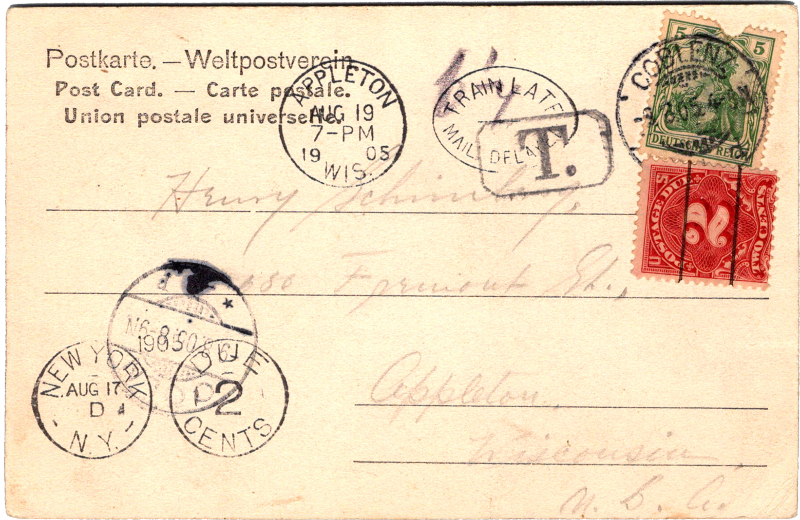 Postkarte. — Weltpostverein
Post Card. — Carte postale.
Union postale universelle.
APPLETON
AUG 19
7-PM
19 05
WIS.
TRAIN LATE
MAIL DELAYED
T.
COBLENZ
5 5
DEUTSCHES REICH
POSTAGE DUE
2
TWO CENTS
Henry
Fremont St.,
Appleton,
Wisconsin
U. S. A.
1905
NEW YORK
AUG 17
D
N.Y.
DUE
2
CENTS